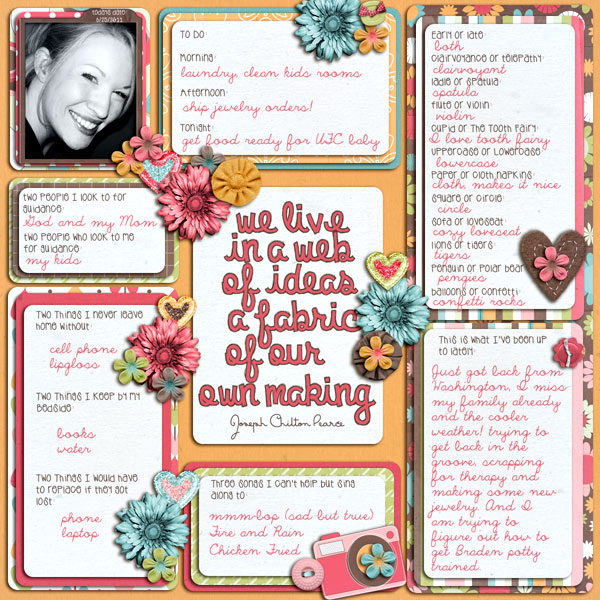 today's date:
6/23/2011
To Do:
Morning:
laundry, clean kids rooms
Afternoon:
ship jewelry orders!
Tonight:
get food ready for UFC baby
Early or late:
both
clairvoyance or telepathy:
clairvoyant
ladle or spatula:
spatula
flute or violin:
violin
cupid or The Tooth Fairy:
I love tooth fairy
uppercase or lowercase:
lowercase
paper or cloth napkins:
cloth, makes it nice
square or circle:
circle
sofa or loveseat:
cozy loveseat
lions or tigers:
tigers
penguin or polar bear:
pengies
balloons or confetti:
confetti rocks
two people I look to for
guidance:
God and my Mom
two people who look to me
for guidance:
my kids
we live
in a web
of ideas
a fabric
of our
own making
Joseph Chilton Pearce
Two Things I never leave
home without:
cell phone
lipgloss
Two Things I keep by my
bedside:
books
water
Two Things I would have
to replace if they got
lost:
phone
laptop
Three songs I can't help but sing
along to:
mmm-bop (sad but true)
Fire and Rain
Chicken Fried
This is what I've been up
to lately:
Just got back from
Washington, I miss
my family already
and the cooler
weather! trying to
get back in the
groove, scrapping
for therapy and
making some new
jewelry. And I
am trying to
figure out how to
get Braden potty
trained.